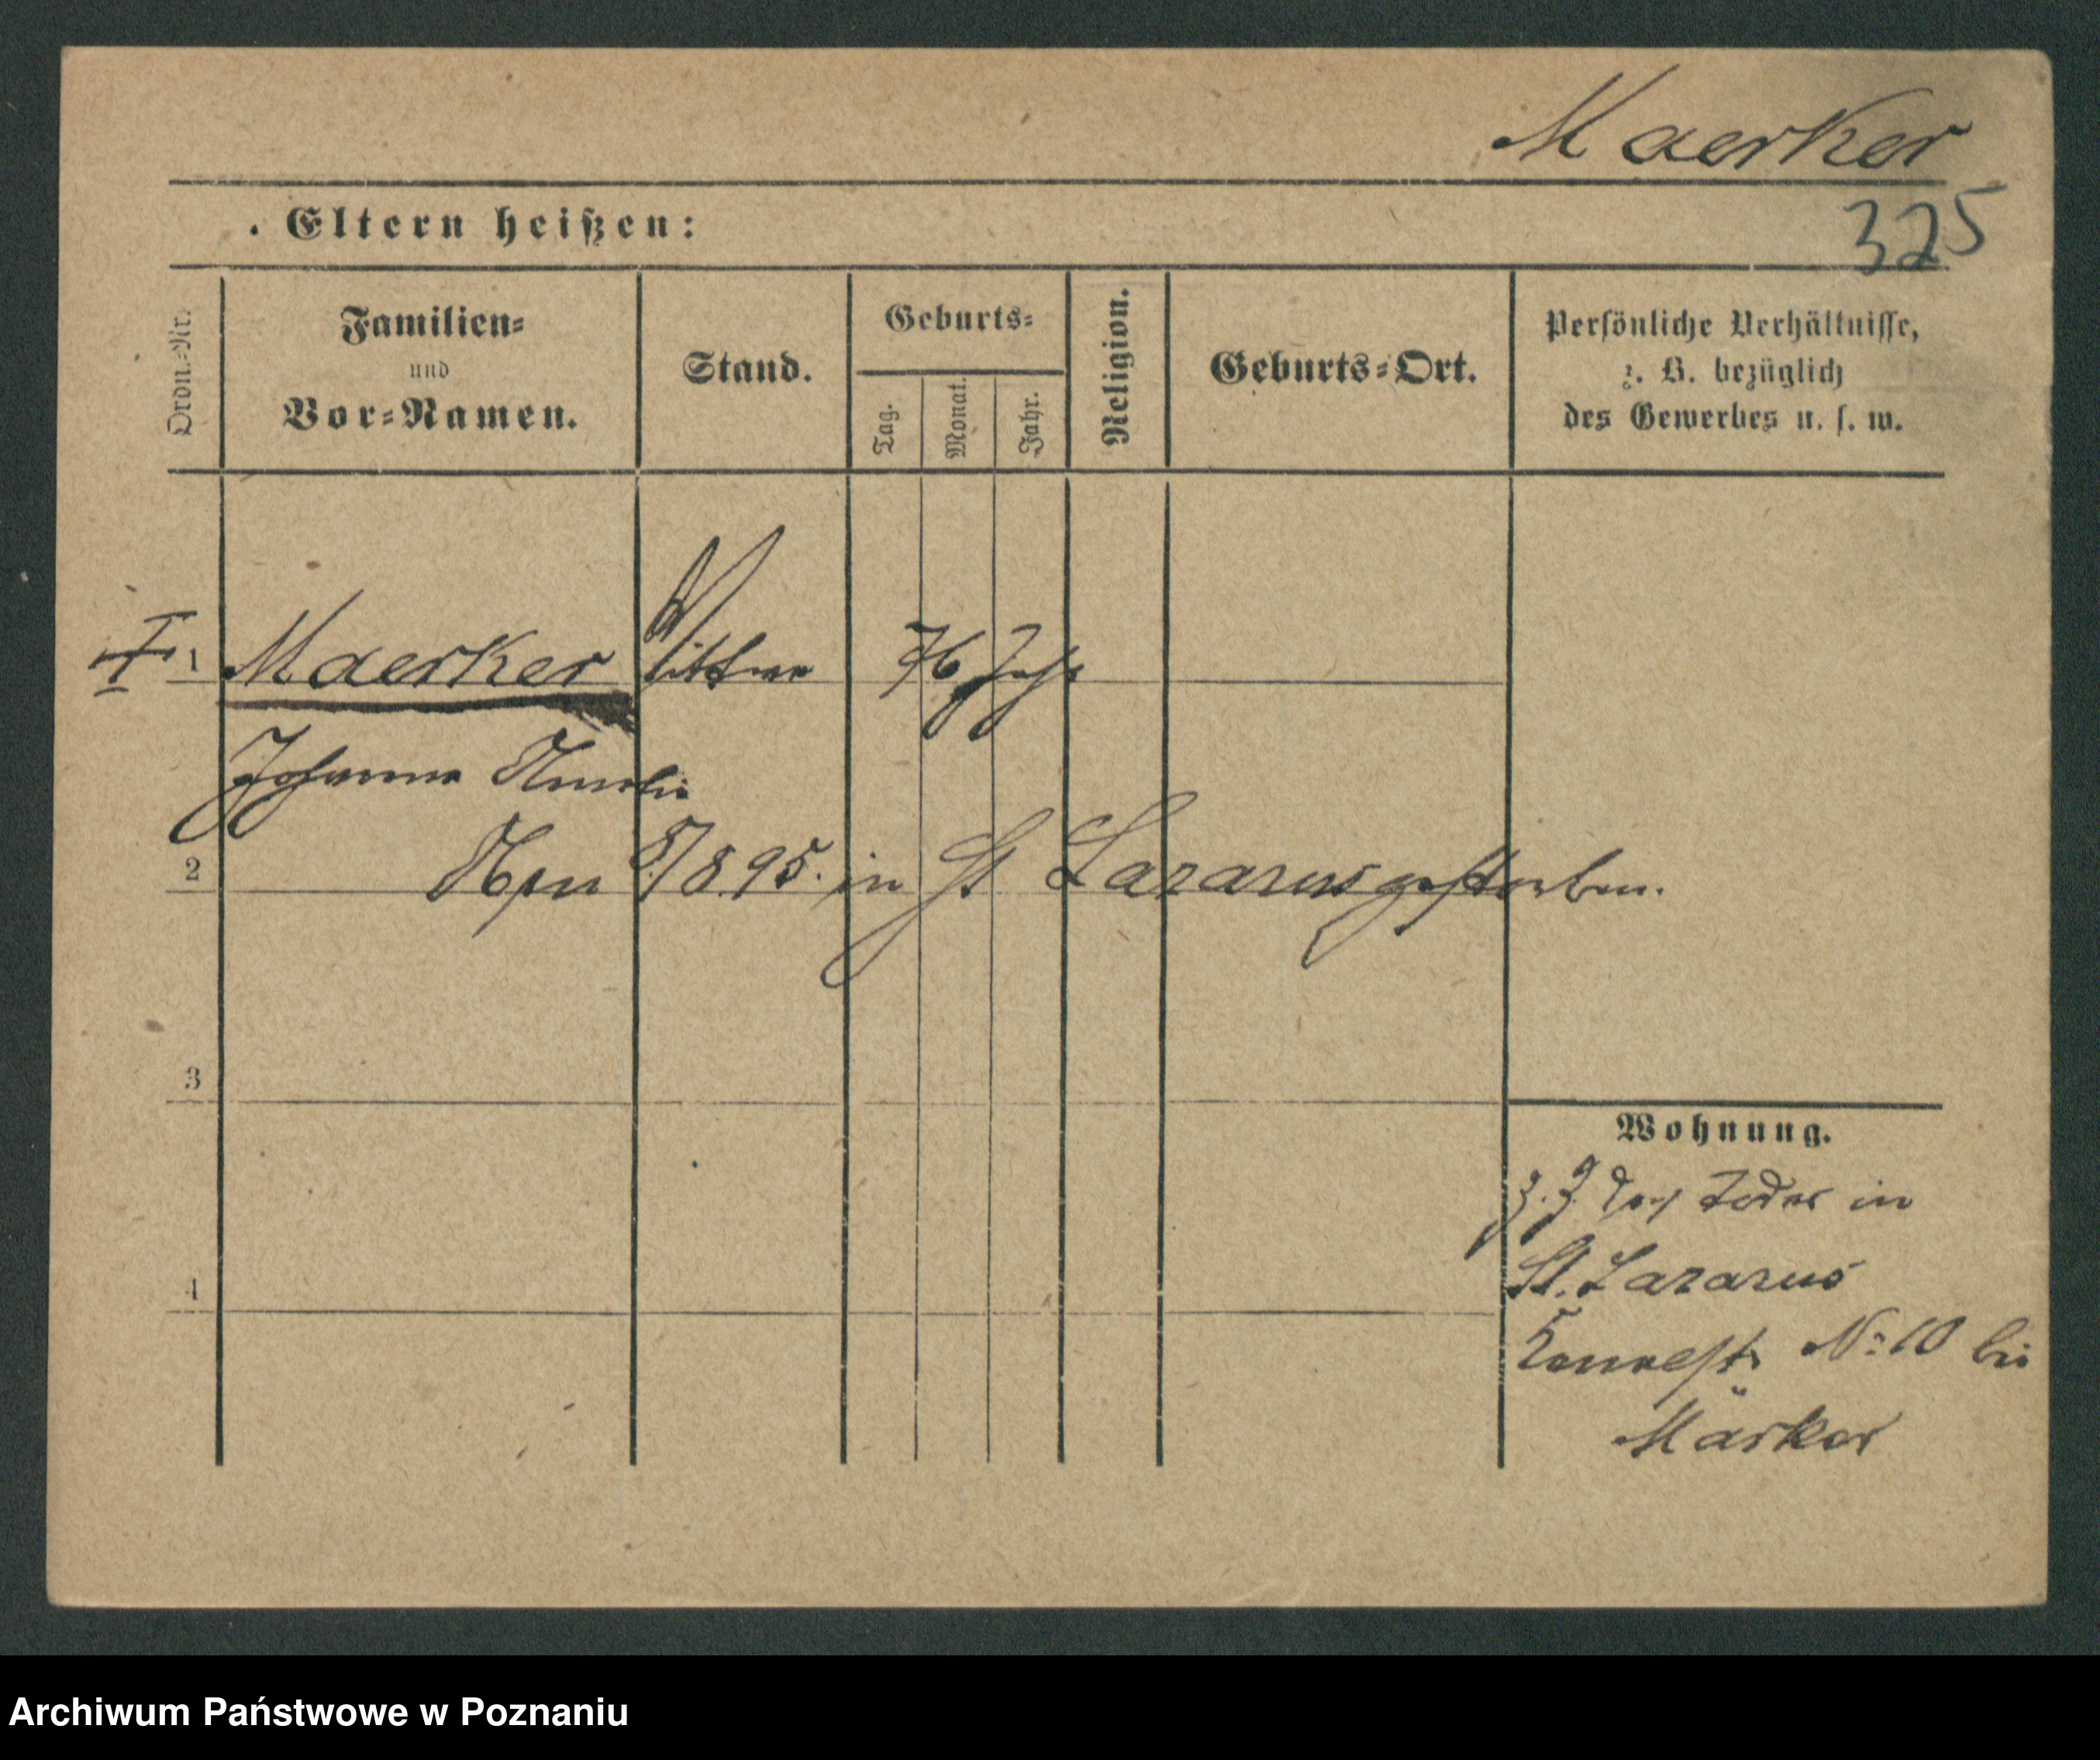 Maerker
325
. Eltern heißen:
Ordn.-Nr.
Familien-
und
Vor-Namen.
Stand.
Geburts-
Tag.
Monat.
Jahr.
Religion.
Geburts-Ort.
Persönliche Verhältnisse,
z. B. bezüglich
des Gewerbes u. s. w.
1 Maerker Wittwe 76 Jahr
Johanna Amalie
2 5/8 95. in St Lazarus gestorben.
3
4
Wohnung.
z. Z. des Todes in
St. Lazarus
No 10 bei
Märker
Archiwum Państwowe w Poznaniu